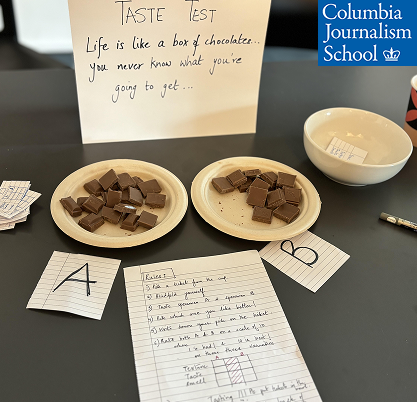 TASTE TEST
Life is like a box of chocolates...
you never know what you're
going to get...
Columbia
Journalism
School
A
B
Rules:
1) Pick a ticket from the cup
2) Blindfold yourself
3) Taste specimen A & specimen B
4) Pick which one you like better!
5) Write down your pick on the ticket
6) Rate both A & B on a scale of 10
where
1 is bad & 10 is best!
on these three
A B
Texture
Taste
Smell